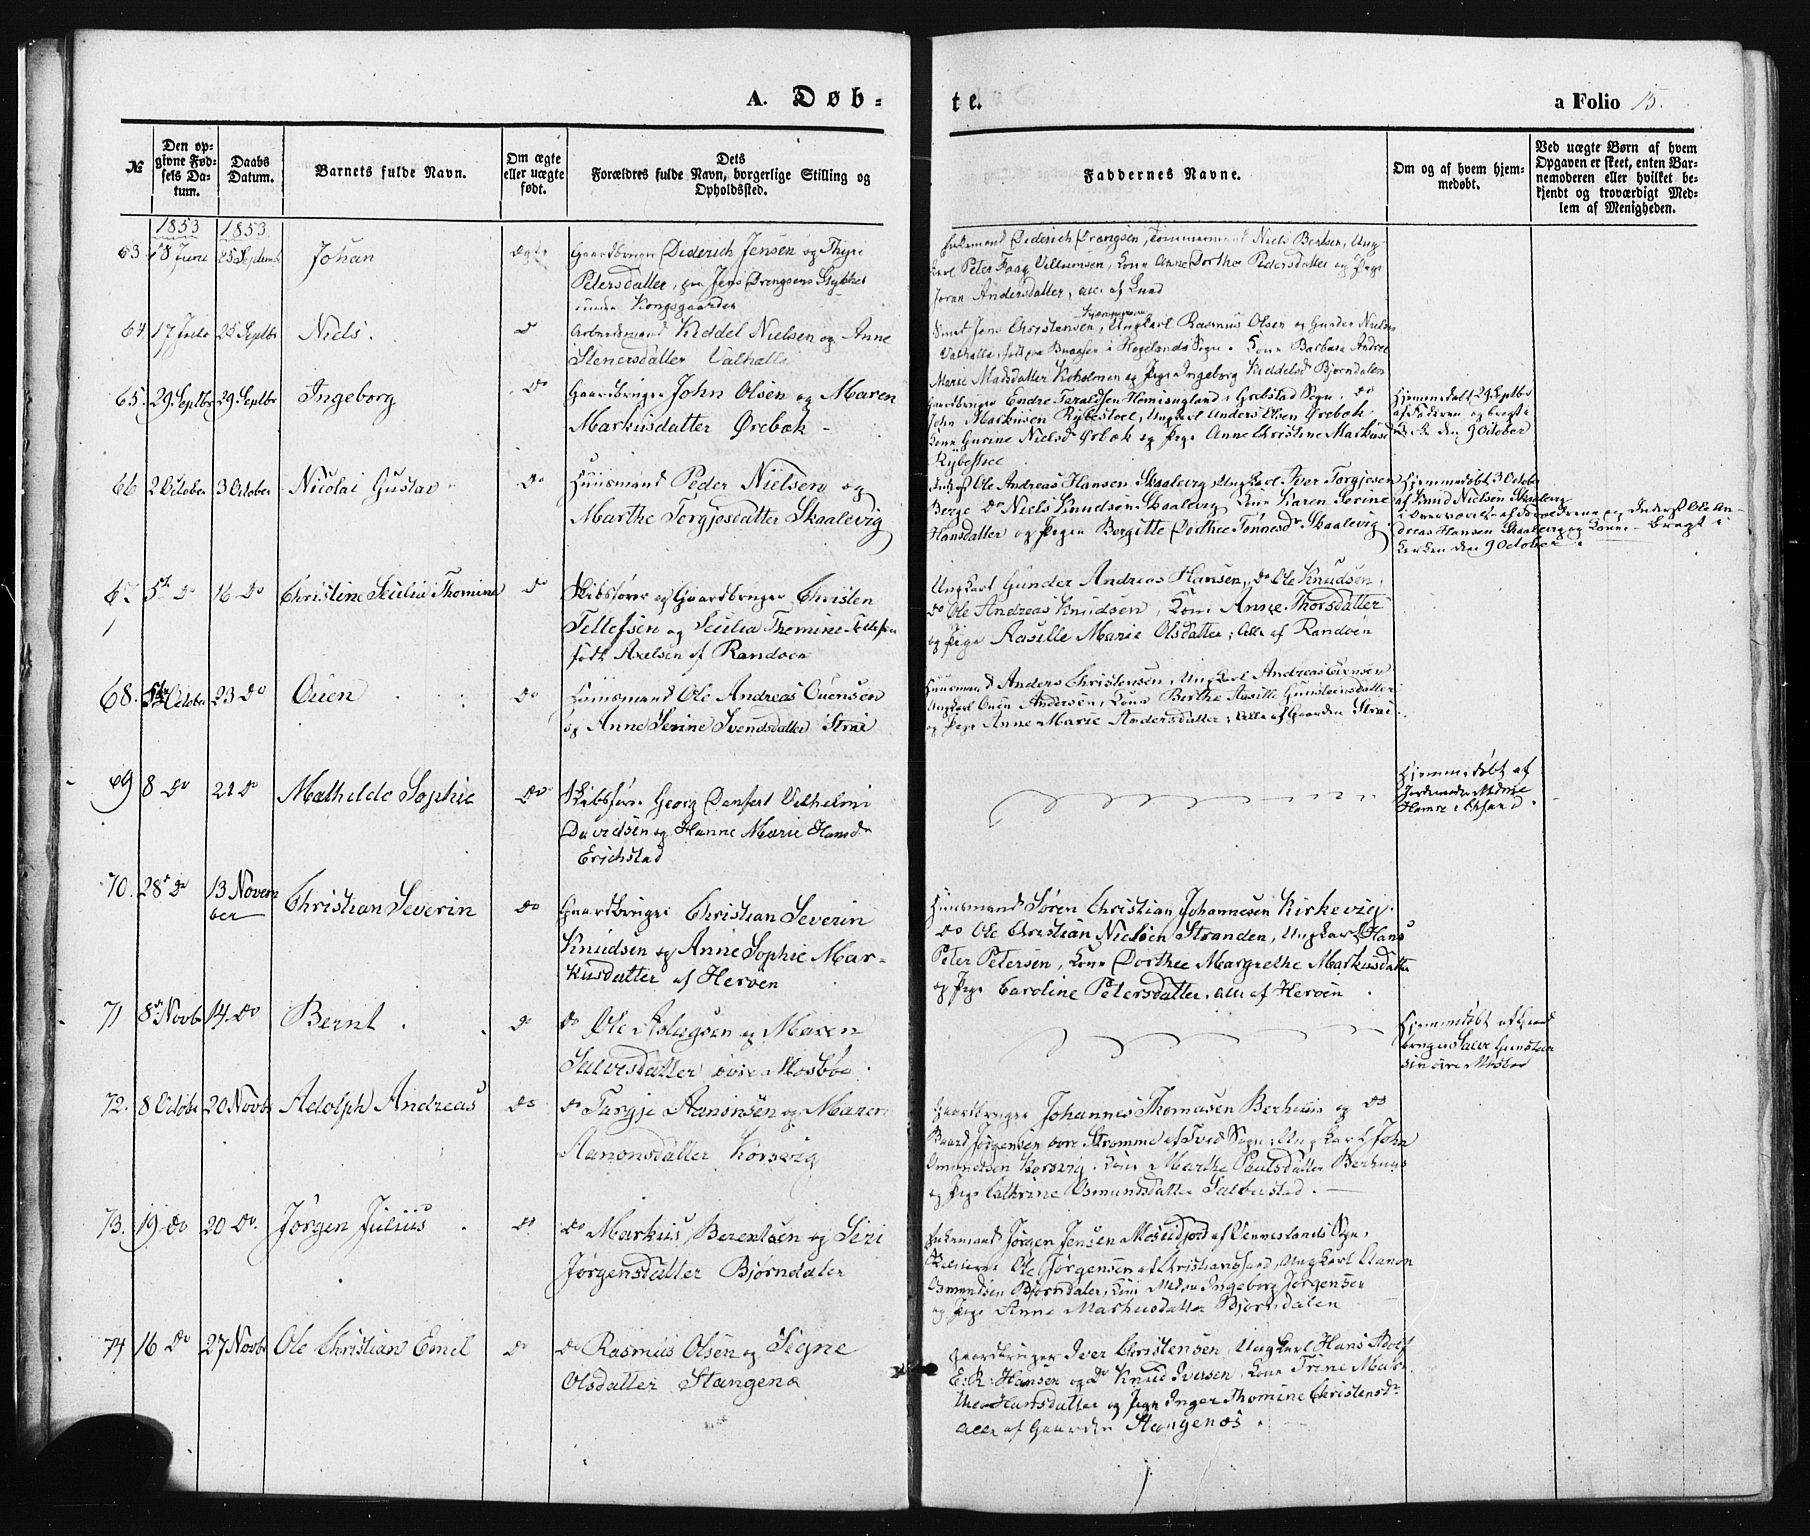 A. Døb-
te.
a Folio 15.
№
Den op-
givne Fød-
sels Da-
tum.
Daabs
Datum.
Barnets fulde Navn.
Om ægte
eller uægte
født.
Dets
Forældres fulde Navn, borgerlige Stilling og
Opholdssted.
Faddernes Navne.
Om og af hvem hjem-
medøbt.
Ved uægte Børn af hvem
Opgaven er skeet, enten Bar-
nemoderen eller hvilket be-
kjendt og troværdigt Med-
lem af Menigheden.
1853 1853.
63 18 Juni 25 Septembr Johan ægte
Gaardbruger Diderich Jensen og Thyri
Petersdatter, paa Jens Drengsens Stykket
under Kongsgaarden
Enkemand Diderich Drengsen, Tømmermand Niels Berlsen, Ung-
karl Peter Faag Villumsen, Kone Anne Dorthe Pedersdatter og Pige
Joran Andersdatter, alle af Lund
64 17 25 Septbr Niels. Do
Arbeidsmand Kiddel Nielsen og Anne
Stenersdatter Valhalla
Jens Christensen, Ungkarl Rasmus Olsen og Gunder Nielsen
Valhalla, i Høgelands Sogn. Kone Barbara Andrea
Marie Madsdatter Koholmen og Pige Ingeborg Kiddelsd Bjørndalen
65. 29. Septbr 29 Septbr Ingeborg Do
Gaardbruger John Olsen og Maren
Markusdatter Ørebæk -
Gaardbruger Endre Taraldsen Homisugland i Grebstad Sogn. Do
John Markusen Rybestoel, Ungkarl Anders Olsen Ørebæk.
Kone Gurine Nielsd Ørbæk og Pige Anne Christine Markusd
Rybestoel
Hjemmedøbt 29 Septbr
af Faderen og bragt i
K. den 9 October
66 2 October 3 October Nicolai Gustav Do
Huusmand Peder Nielsen og
Marthe Torgjesdatter Skaalevig
Inderst Ole Andreas Hansen Skaalevig, Ungkarl Iver Torgjesen
Berge Do Niels Knudsen Skaalevig, Kone Karen Serine
Hansdatter og Pigen Bergitte Dorthee Tønnesdr Skaalevig
Hjemmedøbt 3 October
af Knud Nielsen Skaalevig
i Overværelse af Forældrene og Inderst Ole An-
dreas Hansen Skaalevig og Kone - bragt i
Kirken den 9 October.
67. 5te Do 16 Do Christine Secilia Thomine Do
Skibsfører og Gaardbruger Christen
Tellefsen og Secilia Thomine Tellefsen
født Axelsen af Randøen
Ungkarl Gunder Andreas Hansen, Do Ole Knudsen,
Do Ole Andreas Knudsen, Kone Anne Thorsdatter
og Pige Aasille Marie Olsdatter; Alle af Randøen
68. October 23 Do Ouen Do
Huusmand Ole Andreas Ouensen
og Anne Serine Svendsdatter Strai
Huusmand Anders Christensen, Ungkarl Andreas Ouensen
Ungkarl Ouen Andersen, Kone Berthe Aasille Gunsteinsdatter
og Pige Anne Marie Andersdatter; Alle af Gaarden Strai.
69 8 Do 21 Do Mathilde Sophie Do
Skibsfører Georg Danfert Vilhelm
Davidsen og Hanne Marie Hansdr
Erichstad
Hjemmedøbt af
Jordemoder Madme
70. 28de Do 13 Novem
ber Christian Severin Do
Gaardbruger Christian Severin
Knudsen og Anne Sophie Mar-
kusdatter af Herøen
Huusmand Søren Christian Johannesen Kirkevig.
Do Ole Christian Nielsen Stranden, Ungkarl Hans
Peter Petersen, Kone Dorthee Margrethe Markusdatter
og Pige Caroline Petersdatter, alle af Herøen
71 8de Novbr 14. Do Bernt Do
Do Ole Aslagsen og Maren
Salvesdatter øvre Mosbøe.
Hjemmedøbt af Gaard
bruger Salve Gunstein
sen øvre Mosbø
72. 8 October 20 Novbr Adolph Andreas Do
Do Targje Aanonsen og Maren
Aanonsdatter Korsvig
Gaardbruger Johannes Thomasen Berhuus og Do
Baard Jørgensen bore Strømme af Tved Sogn; Ungkarl John
Omundsen Korsvig. Kone Marthe Poulsdatter Berhuus
og Pige Cathrine Osmundsdatter Salvestad.
73. 19 Do 20 Do. Jørgen Julius Do
Do Markus Berentsen og Seri
Jørgensdatter Bjørndalen
Enkemand Jørgen Jensen Moseidjord af Vennesland Sogn,
Ole Jørgensen af Christianssand, Ungkarl Aanon
Osmundsen Bjørndalen, Kone Ingeborg Jørgensen
og Pige Anne Markusdatter Bjørndalen
74 16 Do 27 Novbr Ole Christian Emil Do
Do Rasmus Olsen og Signe
Olsdatter Stangenæs
Gaardbruger Iver Christensen, Ungkarl Hans Adolf
E. R. Hansen og Do Knud Iversen, Kone Trine Mar-
the Hansdatter og Pige Inger Thomine Christensdr
alle af Gaarden Stangenæs.